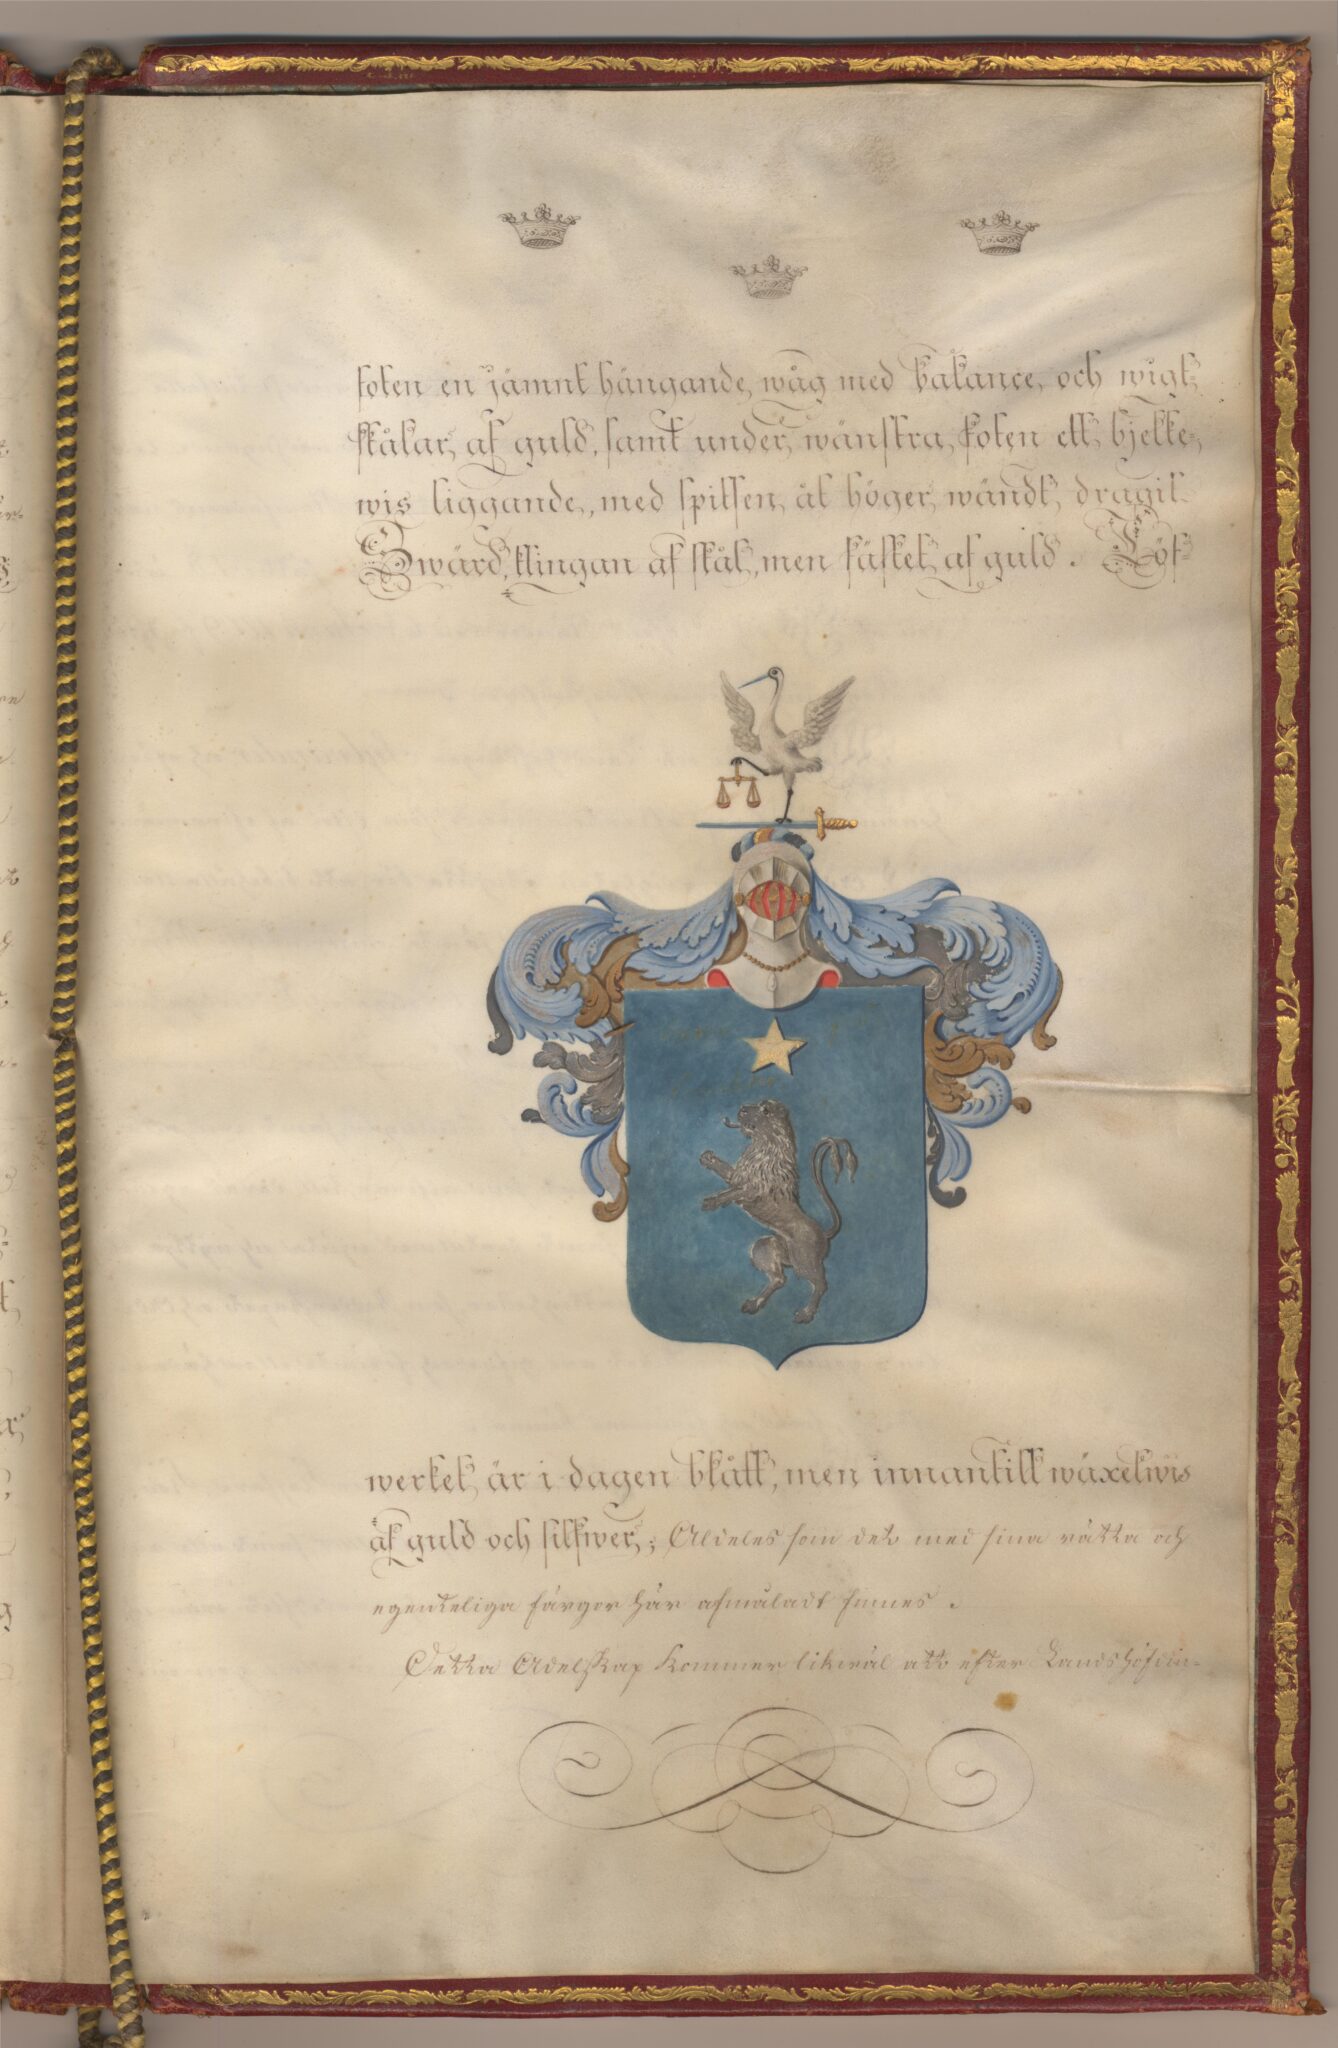 foten en jämnt hängande, wåg med balance, och wigt-
skålar, af guld, samt under, wänstra, foten ett, bjelke-
wis liggande, med spitsen, åt höger, wändt, dragit
Swärd, klingan af stål, men fästet, af guld. Löf-
werket, är i dagen blått, men innantill wäxelwis
af guld och silfwer,; Aldeles som det med sina rätta och
egenteliga färgor här afmåladt finnes.
Detta Adelskap kommer likwäl att efter Landshöfdin-